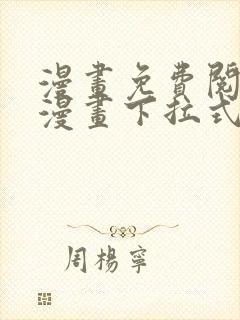 漫畫免費閱
漫畫下拉式
周楊寧